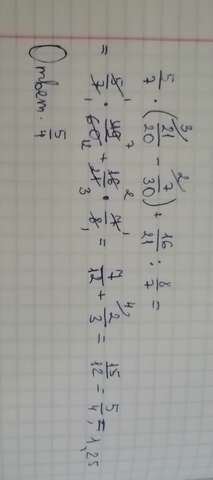 5/7 · (21/20 ³ − 7/30 ²) + 16/21 : 8/7 =
= 5/7 · 49/60 + 16/21 · 7/8 = 7/12 + 2/3 ⁴ = 15/12 = 5/4 = 1,25
Ответ. 5/4